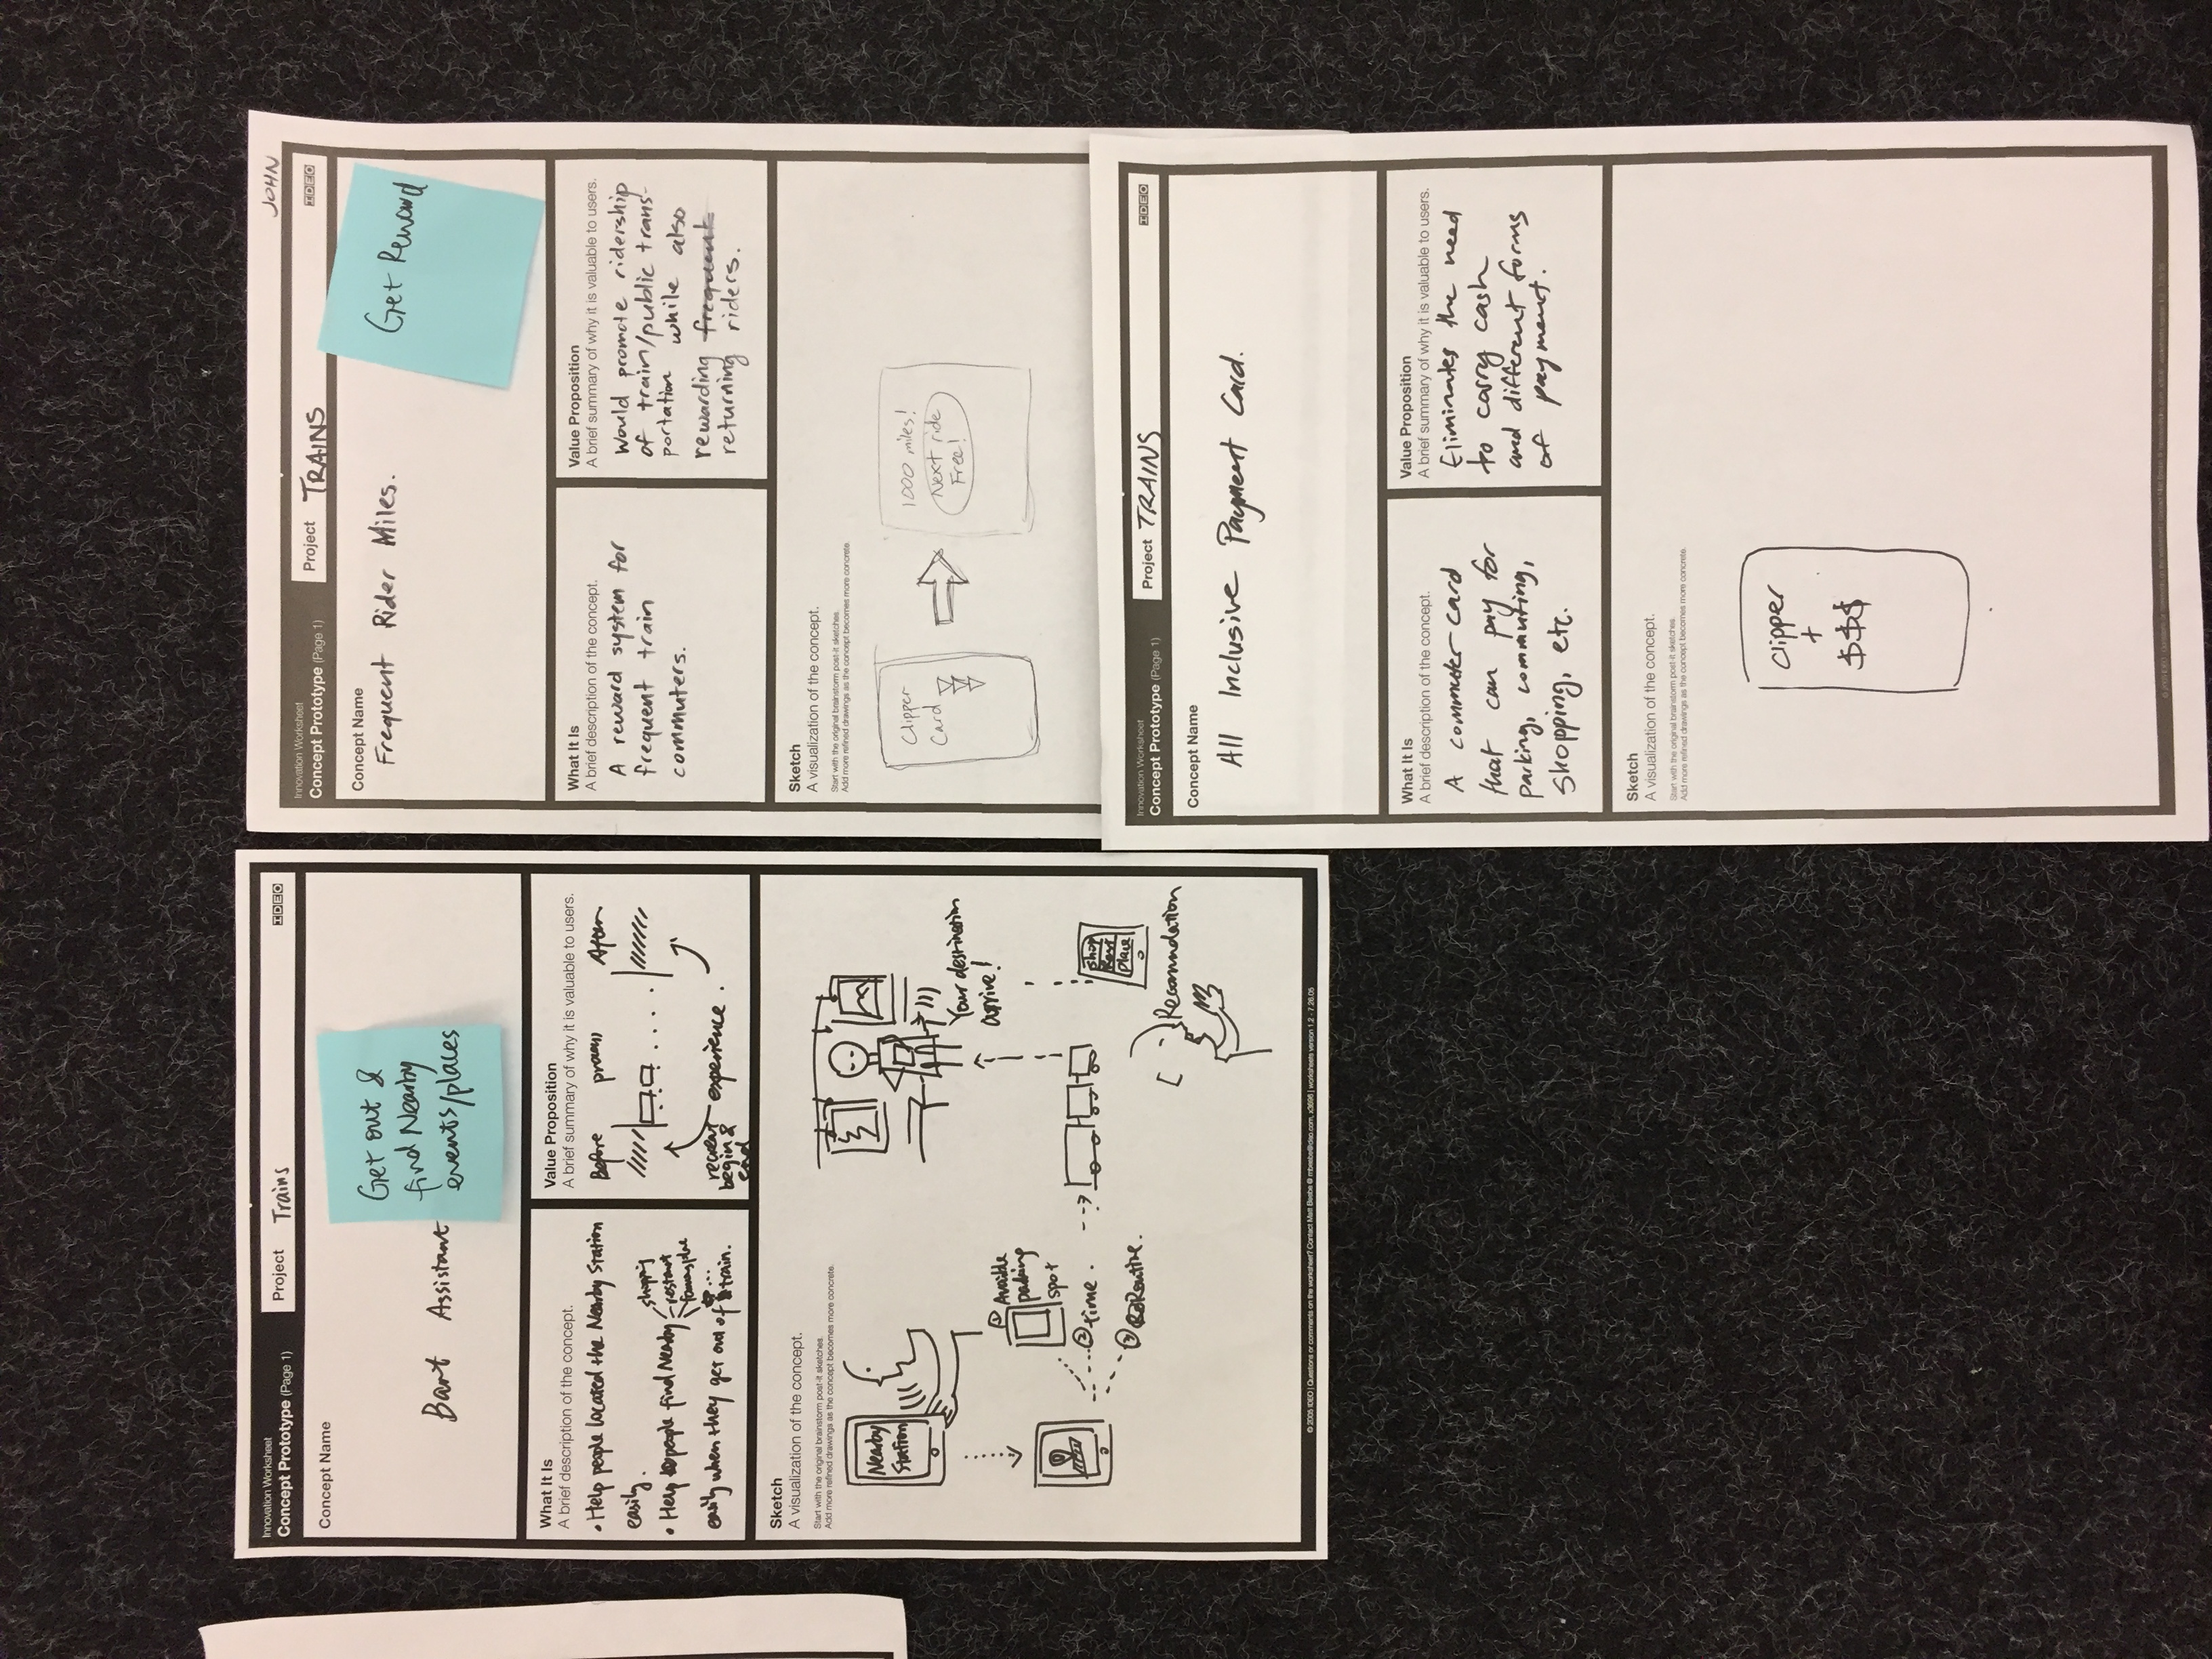 Innovation Worksheet
Concept Prototype (Page 1)
Project Trains
IDEO
Concept Name
Bart Assistant
Get out &
find Nearby
events/places
What It Is
A brief description of the concept.
• Help people located the Nearby Station
easily.
• Help people find Nearby
shopping
restant
famousplac
...
easily when they get out of train.
Value Proposition
A brief summary of why it is valuable to users.
Before process After
recreat
begin &
end
experience.
Sketch
A visualization of the concept.
Start with the original brainstorm post-it sketches.
Add more refined drawings as the concept becomes more concrete.
Nearby
Station
① Avaible
parking
spot
② time.
③ Routine.
Your destination
arrive!
shop
Rest
place
Recomndation
© 2005 IDEO | Questions or comments on the worksheet? Contact Matt Beebe @ mbeebe@ideo.com, x3698 | worksheets version 1.2 - 7.26.05
JOHN
Innovation Worksheet
Concept Prototype (Page 1)
Project TRAINS
IDEO
Concept Name
Frequent Rider Miles.
Get Reward
What It Is
A brief description of the concept.
A reward system for
frequent train
commuters.
Value Proposition
A brief summary of why it is valuable to users.
Would promote ridership
of train/public trans-
portation while also
rewarding frequent
returning riders.
Sketch
A visualization of the concept.
Start with the original brainstorm post-it sketches.
Add more refined drawings as the concept becomes more concrete.
Clipper
Card
1000 miles!
Next ride
Free!
Innovation Worksheet
Concept Prototype (Page 1)
Project TRAINS
IDEO
Concept Name
All Inclusive Payment Card.
What It Is
A brief description of the concept.
A commuter card
that can pay for
parking, commuting,
shopping, etc.
Value Proposition
A brief summary of why it is valuable to users.
Eliminates the need
to carry cash
and different forms
of payment.
Sketch
A visualization of the concept.
Start with the original brainstorm post-it sketches.
Add more refined drawings as the concept becomes more concrete.
Clipper
+
$$$